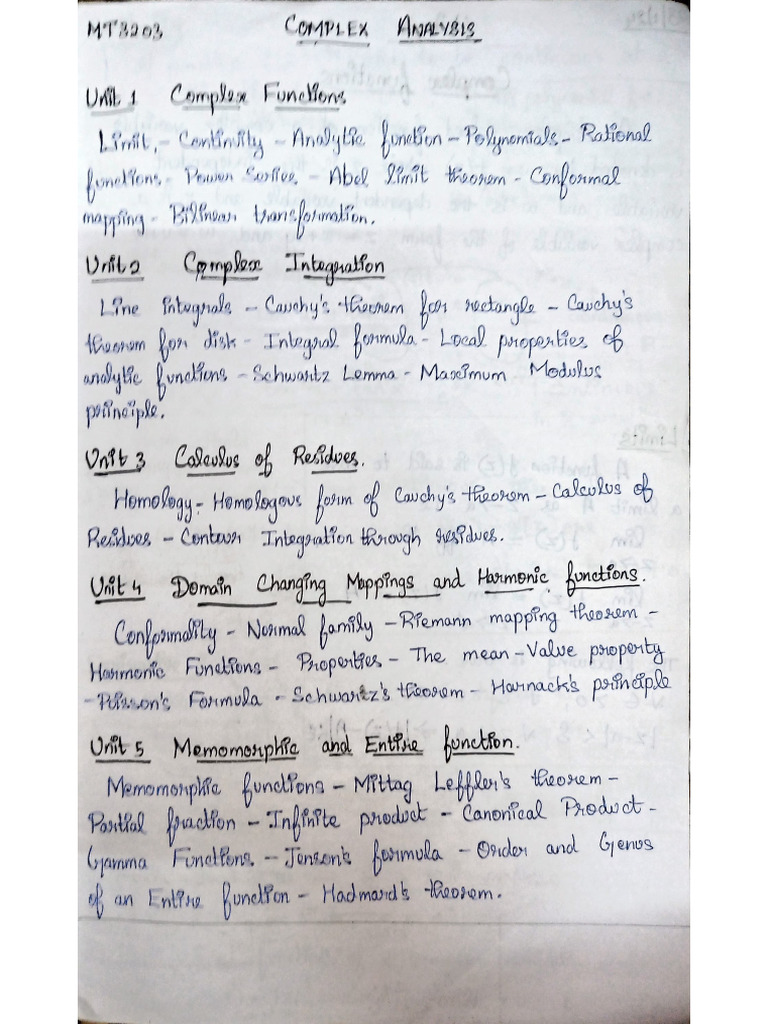 MT8203 COMPLEX ANALYSIS
Unit 1 Complex Functions
Limit - Continuity - Analytic function - Polynomials - Rational
functions - Power Series - Abel limit theorem - Conformal
mapping - Bilinear transformation.
Unit 2 Complex Integration
Line integrals - Cauchy's theorem for rectangle - Cauchy's
theorem for disk - Integral formula - Local properties of
analytic functions - Schwartz Lemma - Maximum Modulus
principle.
Unit 3 Calculus of Residues.
Homology - Homologous form of Cauchy's theorem - Calculus of
Residues - Contour Integration through residues.
Unit 4 Domain Changing Mappings and Harmonic functions.
Conformality - Normal family - Riemann mapping theorem -
Harmonic Functions - Properties - The mean - Value property
- Poisson's Formula - Schwartz's theorem - Harnack's principle
Unit 5 Memomorphic and Entire function.
Memomorphic functions - Mittag Leffler's theorem -
Partial fraction - Infinite product - Canonical Product -
Gamma Functions - Jenson's formula - Order and Genus
of an Entire function - Hadmard's theorem.